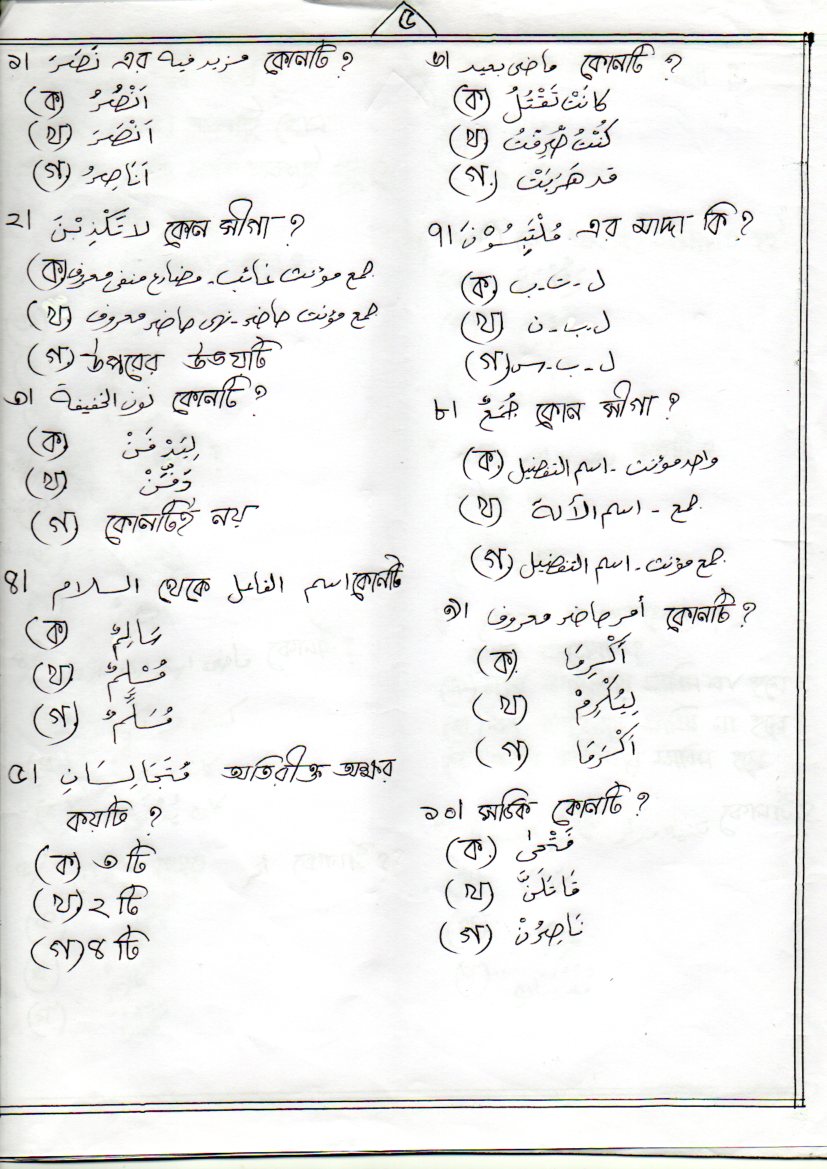 ৫
১। نَصَرَ এর مزيد فيه কোনটি ?
(ক) اَنْصُرُ
(খ) اَنْصَرَ
(গ) اَنَاصِرُ
২। لَا تَكْذِبْنَ কোন সীগা ?
(ক) جمع مؤنث غائب - مضارع منفى معروف
(খ) جمع مؤنث حاضر - نهى حاضر معروف
(গ) উপরের উভয়টি
৩। نون الخفيفة কোনটি ?
(ক) لِيَدْفَنْ
(খ) دَفَّنْ
(গ) কোনটিই নয়
৪। السلام থেকে اسم الفاعل কোনটি
(ক) سَالِمٌ
(খ) مُسْلِمٌ
(গ) مُسَلِّمٌ
৫। مُتَجَالِسَانِ অতিরীক্ত অক্ষর
কয়টি ?
(ক) ৩ টি
(খ) ২ টি
(গ) ৪ টি
৬। ماضى بعيد কোনটি ?
(ক) كَانَتْ تَقْتُلُ
(খ) كُنْتُ صُرِفْتُ
(গ) قد ضَرَبَتْ
৭। مُلْتَبِسُوْنَ এর মাদ্দা কি ?
(ক) ل - ت - ب
(খ) ل - ب - ن
(গ) ل - ب - س
৮। جُمَعٌ কোন সীগা ?
(ক) واحد مؤنث - اسم التفضيل
(খ) جمع - اسم الآلة
(গ) جمع مؤنث - اسم التفضيل
৯। أمر حاضر معروف কোনটি ?
(ক) اَكْرِمَا
(খ) لِيُكْرِمْ
(গ) اَكْرَمَا
১০। সঠিক কোনটি ?
(ক) فَتْحٰى
(খ) قَاتَلَنَّ
(গ) نَاصِرُنْ